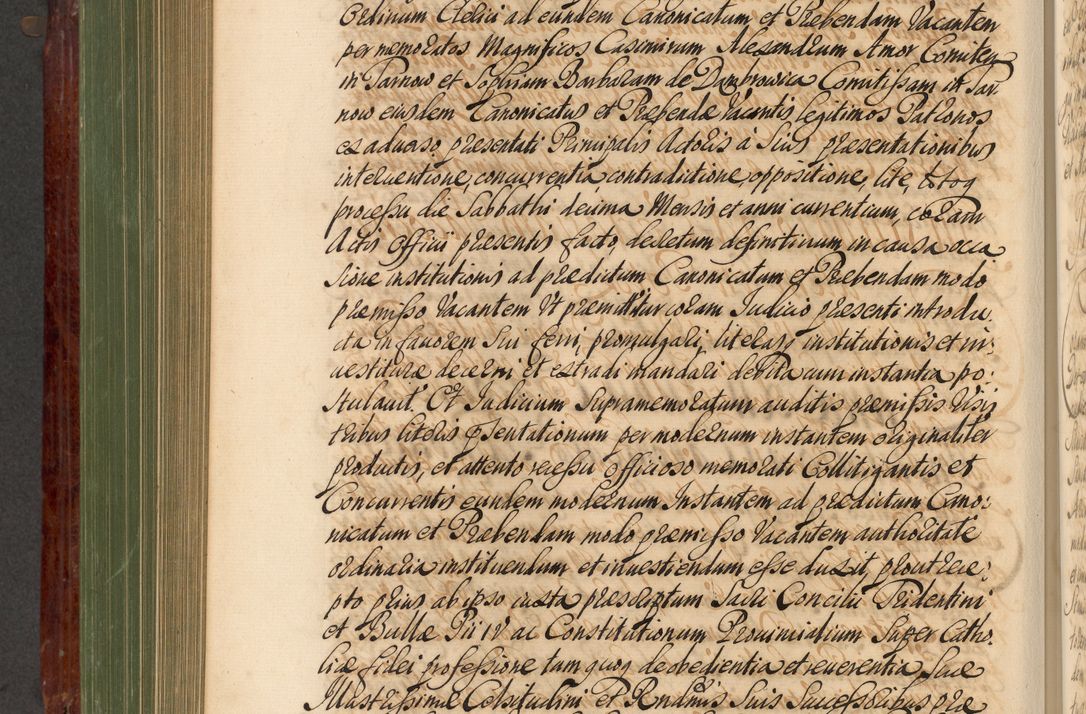 Ordinum Clerici ad eundem Canonicatum et Præbendam Vacantem
per memoratos Magnificos Casimirum Alexandrum Amor Comitem
in Tarnow et Sophiam Barbaram de Dąmbrowica Comitissam in Tar
now eiusdem Canonicatus et Præbendæ Vacantis legitimos Patronos
ex aduerso præsentati Principalis Actoris à Suis præsentationibus
interuentione, concurrentia contradictione, oppositione, lite, totoq
processu die Sabbathi decima Mensis et anni currentium, coram
Actis Officii præsentis facto, decretum definitiuum in causa occa
sione institutionis ad prædictum Canonicatum et Præbendam modo
præmisso Vacantem Vt præmittitur coram Judicio præsenti introdu
cta in fauorem Sui ferri, promulgari, literasq institutionis et in:
uestituræ decerni et extradi mandari debita cum instantia po:
stulauit. Et Judicium Supramemoratum auditis præmissis Visis
tribus literis præsentationum per modernum instantem originaliter
productis, et attento recessu Officioso memorati Collitigantis et
Concurrentis eundem modernum Instantem ad prædictum Cano:
nicatum et Præbendam modo præmisso Vacantem authoritate
ordinaria instituendum et inuestiendum esse duxit, prout rece:
pto prius ab ipso iuxta præscriptum Sacri Concilii Tridentini
et Bullæ Pii IV ac Constitutionum Prouincialium Super Catho
licæ fidei professione tam quoq de obedientia et reuerentia Suæ
Illustrissimæ Celsitudini et Rendmis Suis Successoribus præ